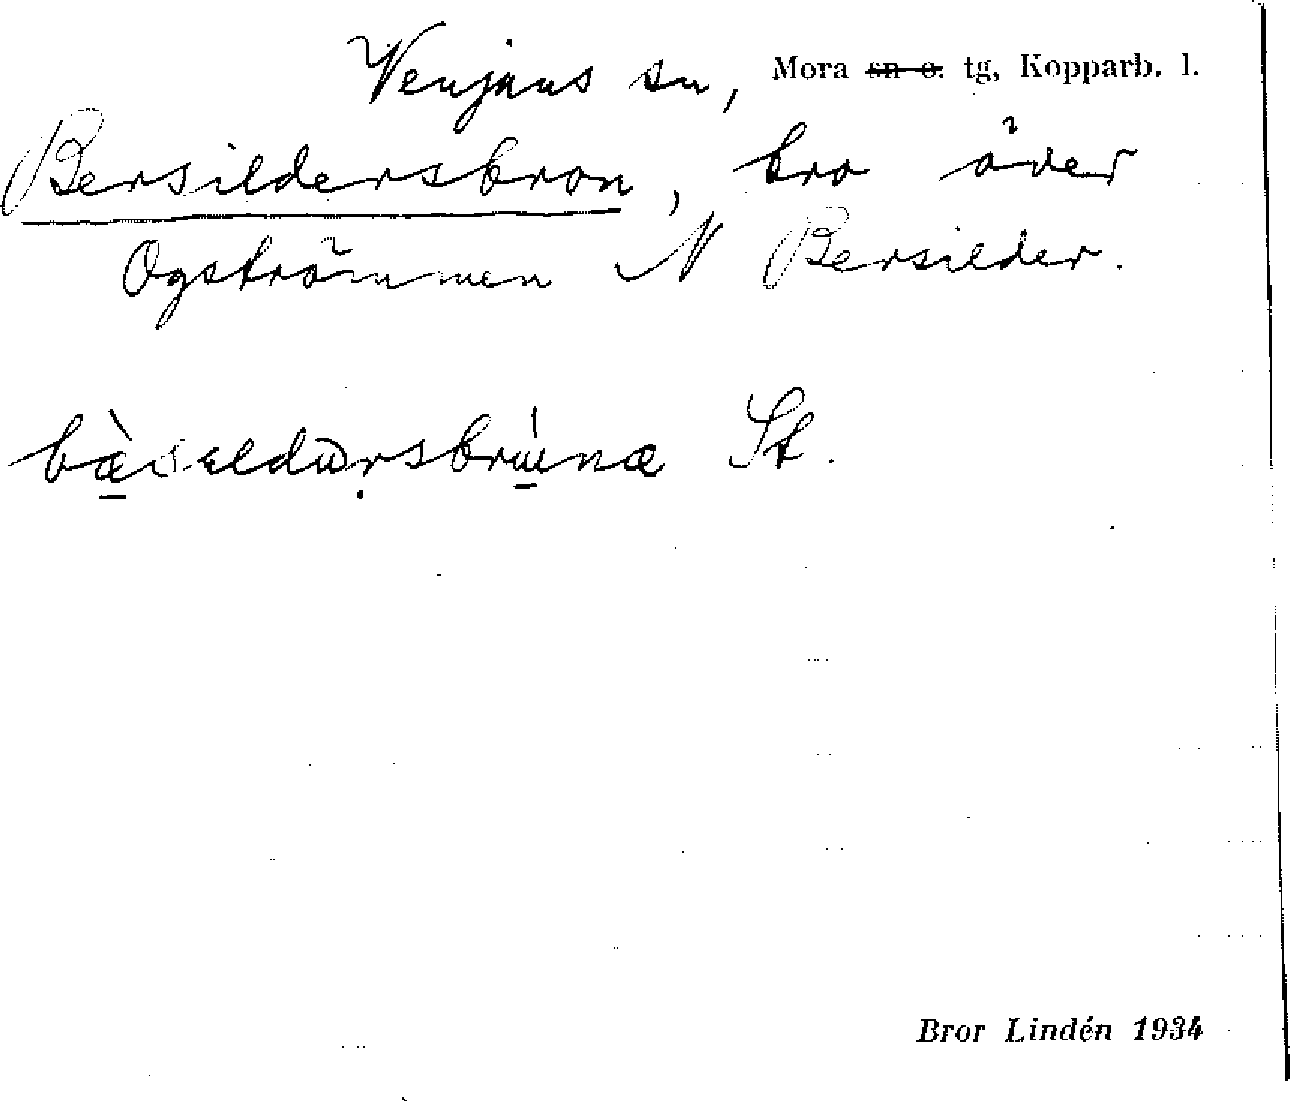 Venjans sn, Mora sn o. tg, Kopparb. l.
Bersildersbron, bro över
Ogströmmen N Bersilder.
St.
Bror Lindén 1934